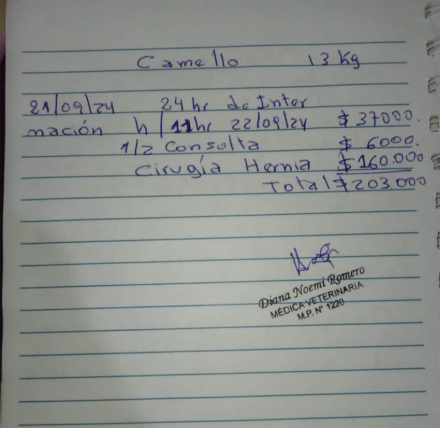 Camello 13 Kg
21/09/24 24 hs de Inter
nación h/11hs 22/09/24 $ 37000.
1/2 Consulta $ 6000.
Cirugía Hernia $160.000
Total $203.000
Diana Noemí Romero
MÉDICA VETERINARIA
M.P. N° 1226